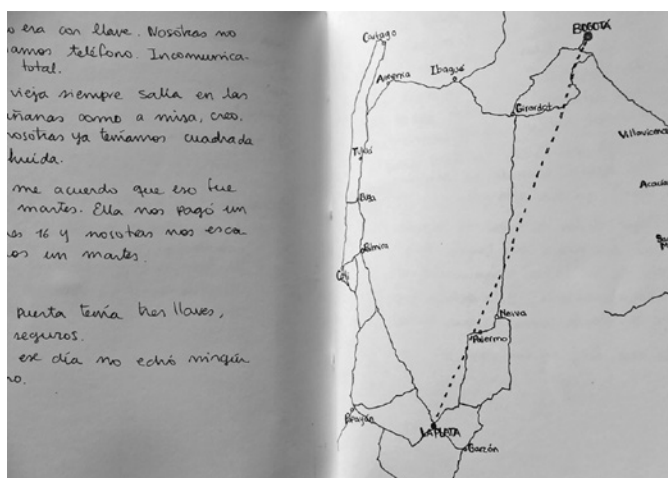 o era con llave. Nosotras no
íamos teléfono. Incomunica-
total.
vieja siempre salía en las
ñanas como a misa, creo.
nosotras ya teníamos cuadrada
huída.
me acuerdo que eso fue
martes. Ella nos pagó un
es 16 y nosotras nos esca-
os un martes.
puerta tenía tres llaves,
seguros.
ese día no echó ningún
no.
BOGOTÁ
Cartago
Armenia
Ibagué
Girardot
Villavicenc
Tuluá
Acacía
Buga
Palmira
Cali
Neiva
Palermo
Popayán
LA PLATA
Garzón